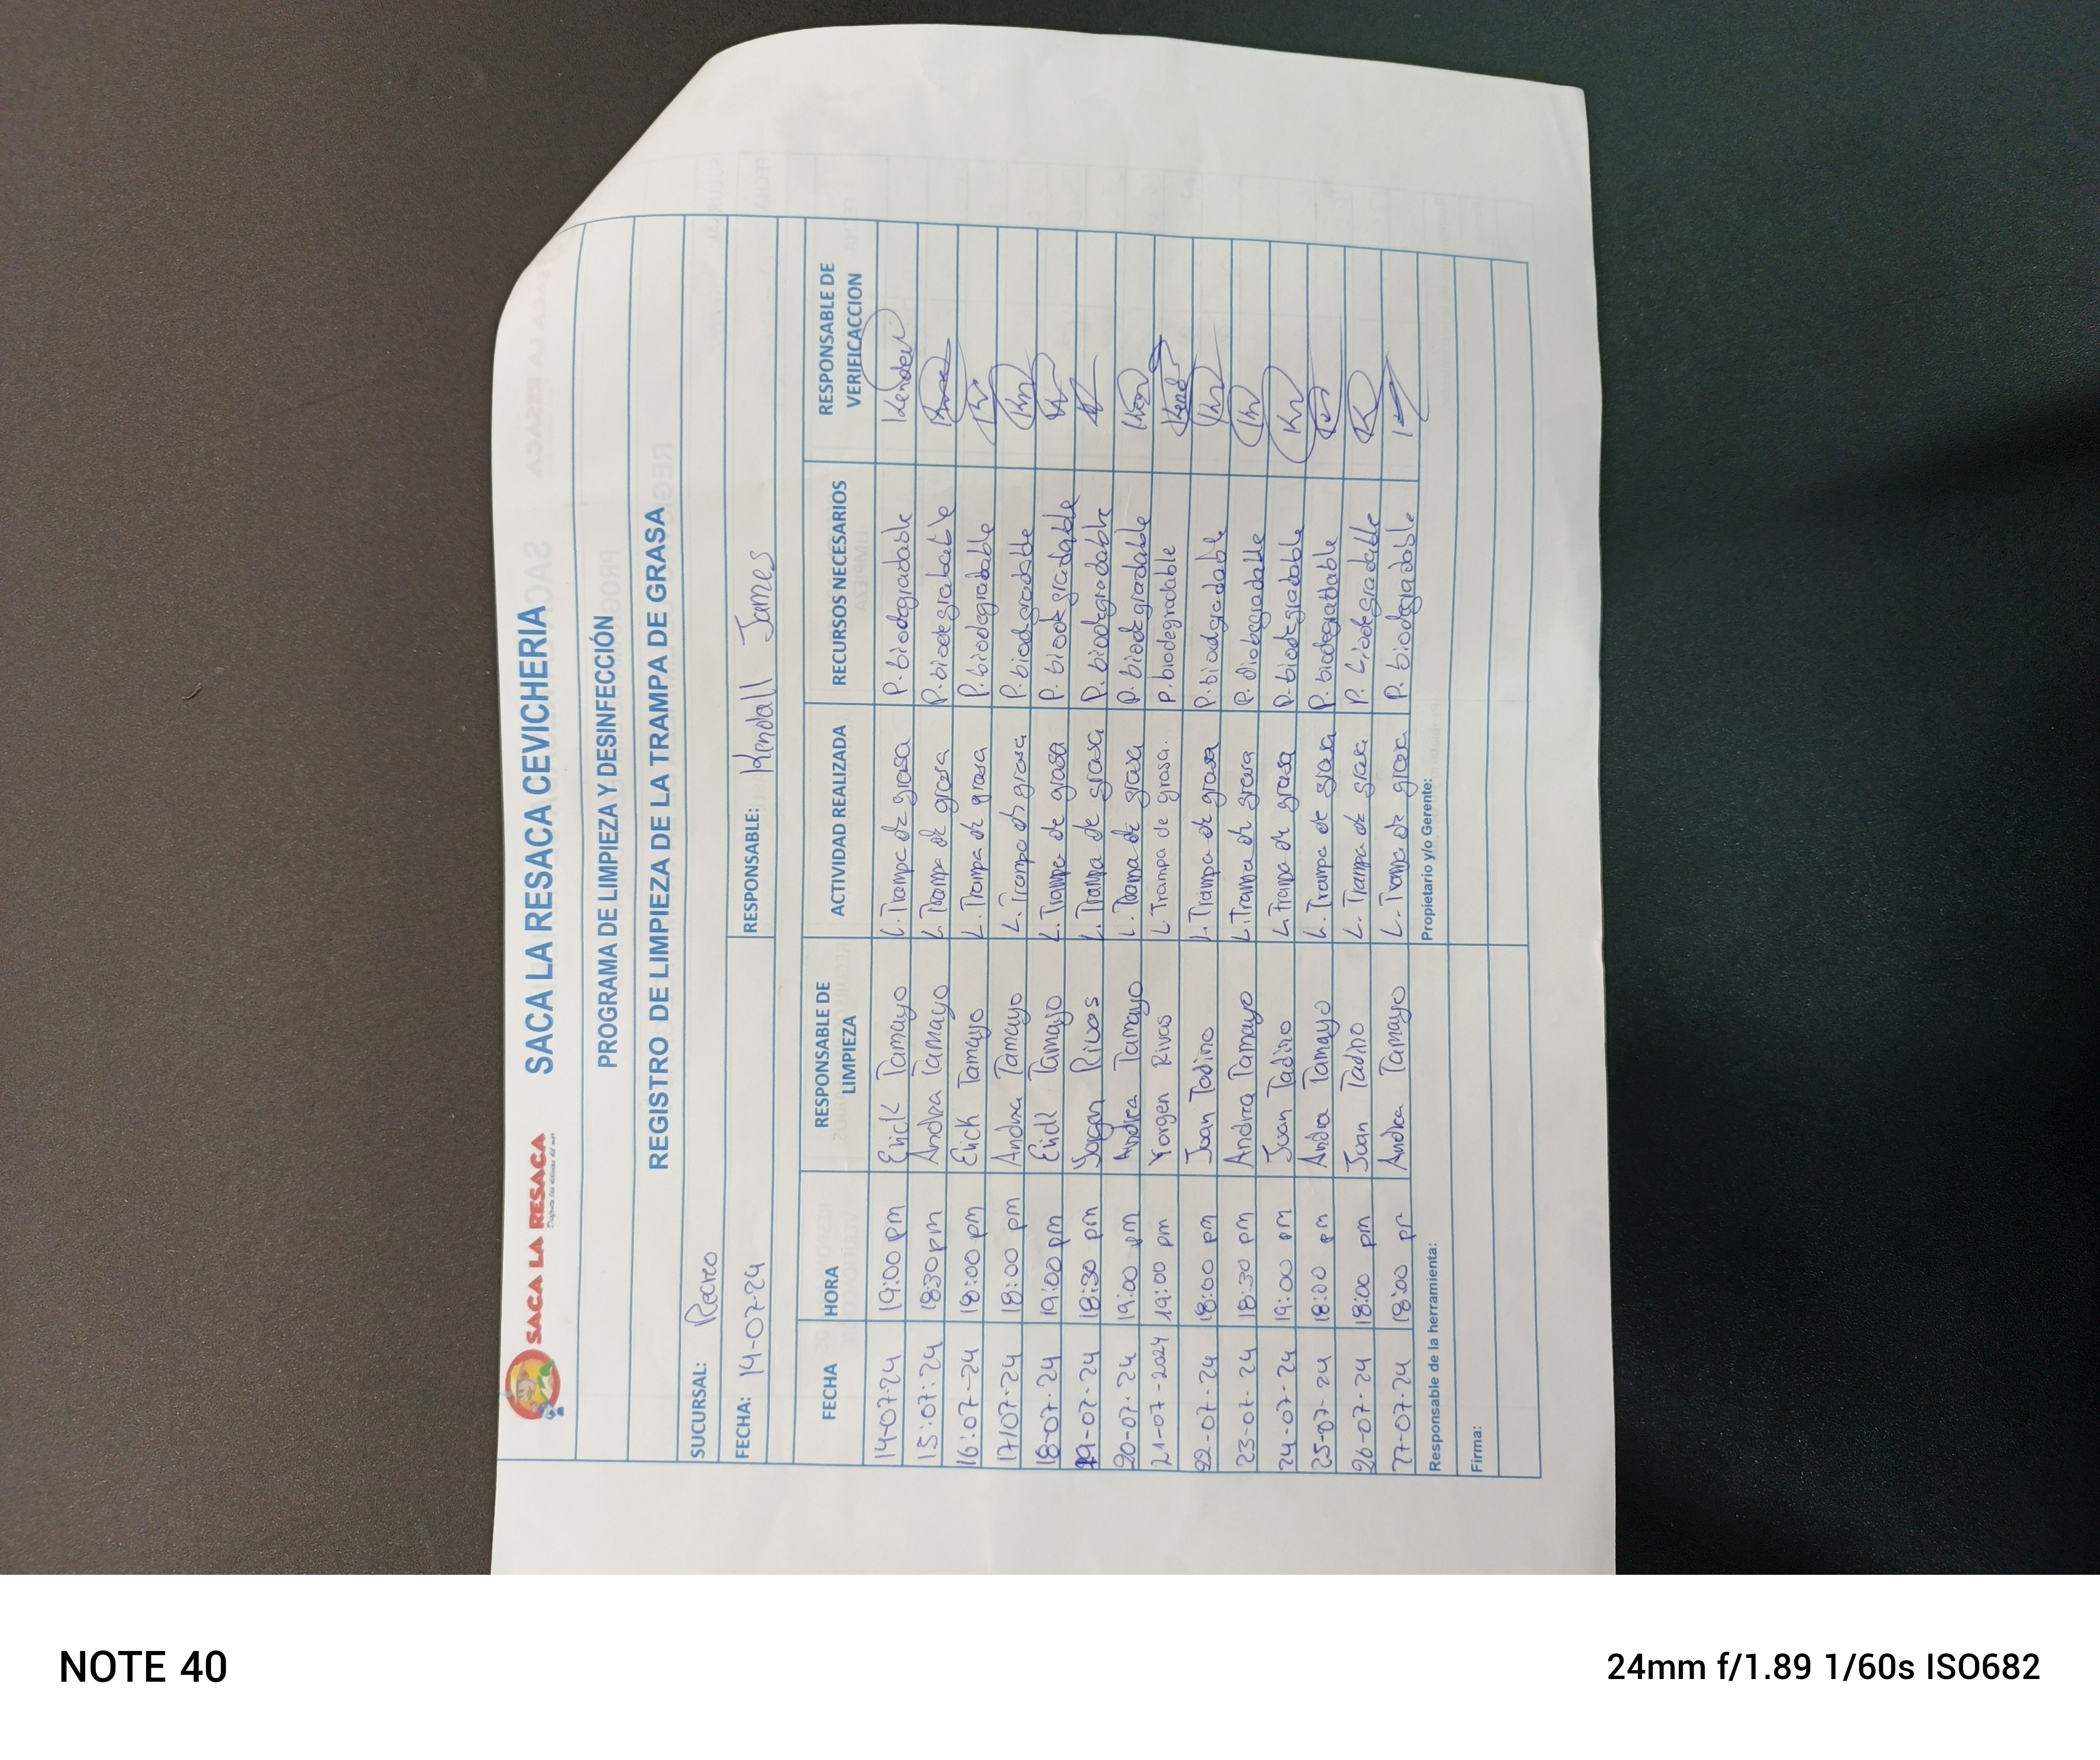 SACA LA RESACA SACA LA RESACA CEVICHERIA
PROGRAMA DE LIMPIEZA Y DESINFECCIÓN
REGISTRO DE LIMPIEZA DE LA TRAMPA DE GRASA
SUCURSAL: Recreo
FECHA: 14-07-24 RESPONSABLE: Kendall James
FECHA HORA RESPONSABLE DE LIMPIEZA ACTIVIDAD REALIZADA RECURSOS NECESARIOS RESPONSABLE DE VERIFICACCION
14-07-24 19:00 pm Erick Tamayo L. Trampa de grasa P. biodegradable Kendall
15:07:24 18:30 pm Andrea Tamayo L. Trampa de grasa P. biodegrabable
16:07-24 18:00 pm Erick Tamayo L. Trompa de grasa P. biodegradable
17/07-24 18:00 pm Andrea Tamayo L. Trampa de grasa P. biodegradable
18-07-24 19:00 pm Erick Tamayo L. Trampa de grasa P. biodegradable
19-07-24 18:30 pm Yorgen Rivas L. Trampa de grasa P. biodegradable
20-07-24 19:00 pm Andrea Tamayo L. Trampa de grasa P. biodegradable
21-07-2024 19:00 pm Yorgen Rivas L. Trampa de grasa. P. biodegradable
22-07-24 18:00 pm Juan Tadino L. Trampa de grasa P. biodgradable
23-07-24 18:30 pm Andrea Tamayo L. Trama de grasa P. diobegradable
24-07-24 19:00 pm Juan Tadino L. Trampa de grasa P. biodegradable
25-07-24 18:00 pm Andrea Tamayo L. Trampa de grasa P. biodegradable
26-07-24 18:00 pm Juan Tadino L. Trampa de grasa P. biodegradable
27-07-24 18:00 pm Andrea Tamayo L. Trampa de grasa P. biodegradable
Responsable de la herramienta: Propietario y/o Gerente:
Firma:
NOTE 40 24mm f/1.89 1/60s ISO682